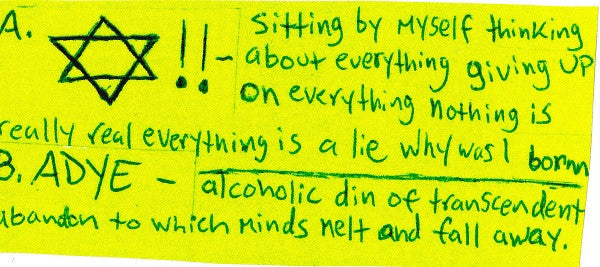 A. ✡!! - Sitting by myself thinking
about everything giving up
on everything nothing is
really real everything is a lie why was I born
B. ADYE - alcoholic din of transcendent
abandon to which minds melt and fall away.